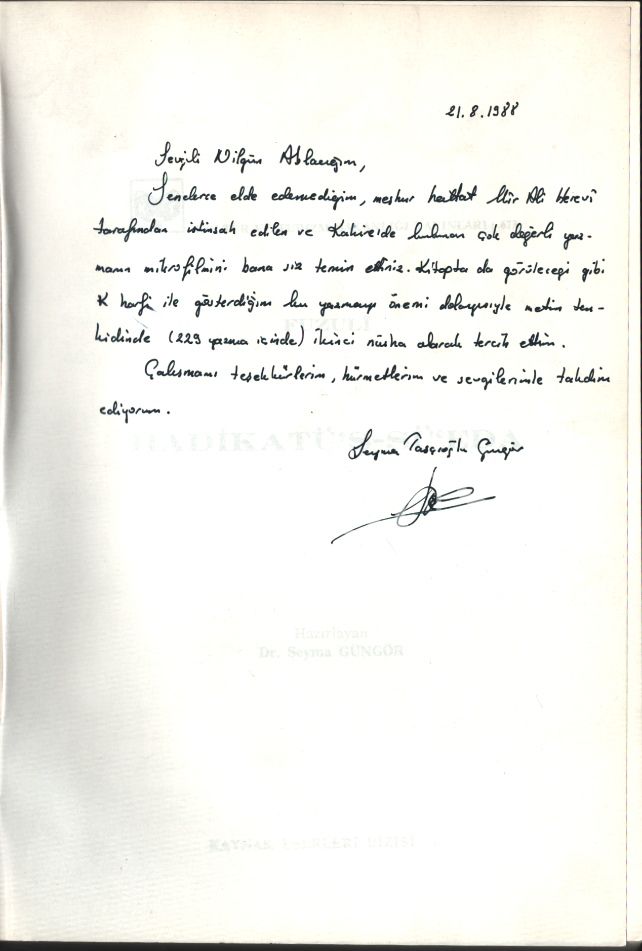 21.8.1988
Sevgili Nilgün Ablacığım,
Senelerce elde edemediğim, meşhur hattat Mir Ali Herevî
tarafından istinsah edilen ve Kahire'de bulunan çok değerli yaz-
manın mikrofilmini bana siz temin ettiniz. Kitapta da görüleceği gibi
K harfi ile gösterdiğim bu yazmayı önemi dolayısiyle metin ten-
kidinde (229 yazma içinde) ikinci nüsha olarak tercih ettim.
Çalışmamı teşekkürlerim, hürmetlerim ve sevgilerimle takdim
ediyorum.
Şeyma Taşçıoğlu Güngör
FUZULİ
HADİKATÜ'S-SÜ'EDA
Hazırlayan
Dr. Şeyma GÜNGÖR
KAYNAK ESERLERİ DİZİSİ